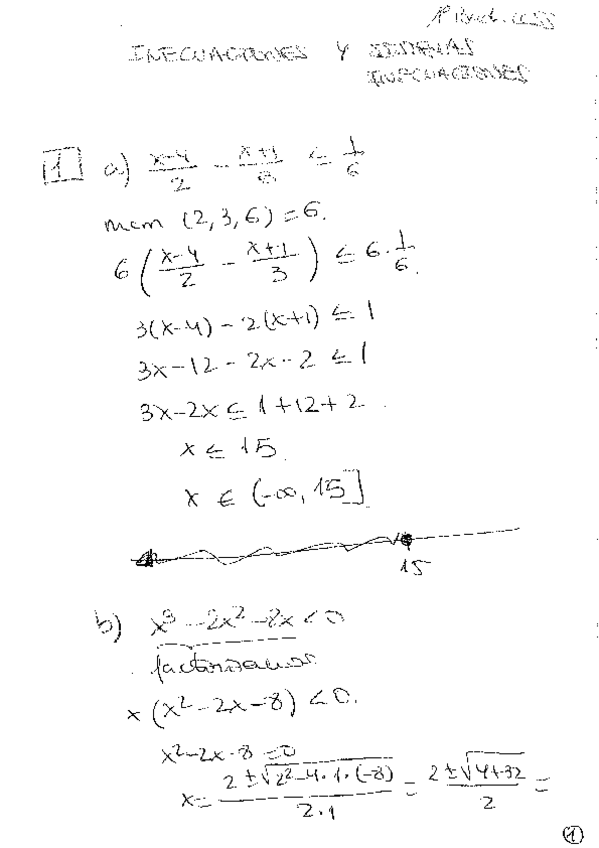 1º Bach. CCSS
INECUACIONES Y SISTEMAS
INECUACIONES
1 a) (x-4)/2 - (x+1)/3 ≤ 1/6
mcm (2,3,6) = 6.
6 ( (x-4)/2 - (x+1)/3 ) ≤ 6 · 1/6.
3(x-4) - 2(x+1) ≤ 1
3x - 12 - 2x - 2 ≤ 1
3x - 2x ≤ 1 + 12 + 2
x ≤ 15.
x ∈ (-∞, 15]
15
b) x³ - 2x² - 8x < 0
factorizamos
x (x² - 2x - 8) < 0.
x² - 2x - 8 = 0
x = (2 ± √(2² - 4 · 1 · (-8)))/(2 · 1) = (2 ± √(4 + 32))/2 =
1